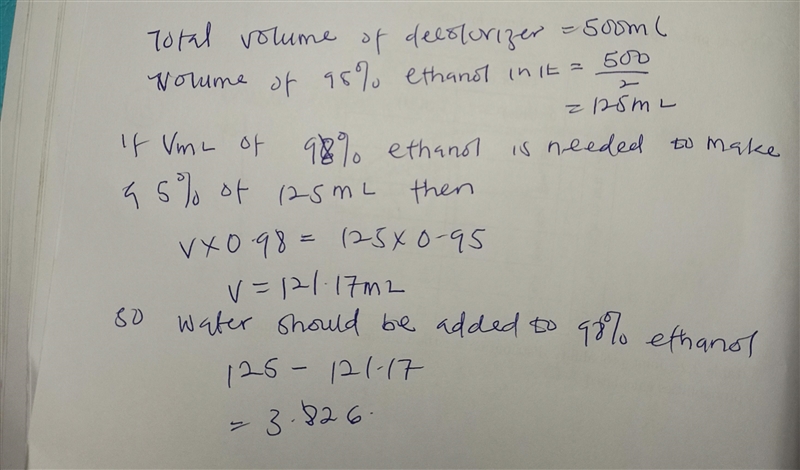 Total volume of decolorizer = 500mL
Volume of 95% ethanol in it = 500/2
= 125mL
If VmL of 98% ethanol is needed to make
95% of 125mL then
V×0.98 = 125×0.95
V = 121.17mL
So water should be added to 98% ethanol
125 - 121.17
= 3.826.